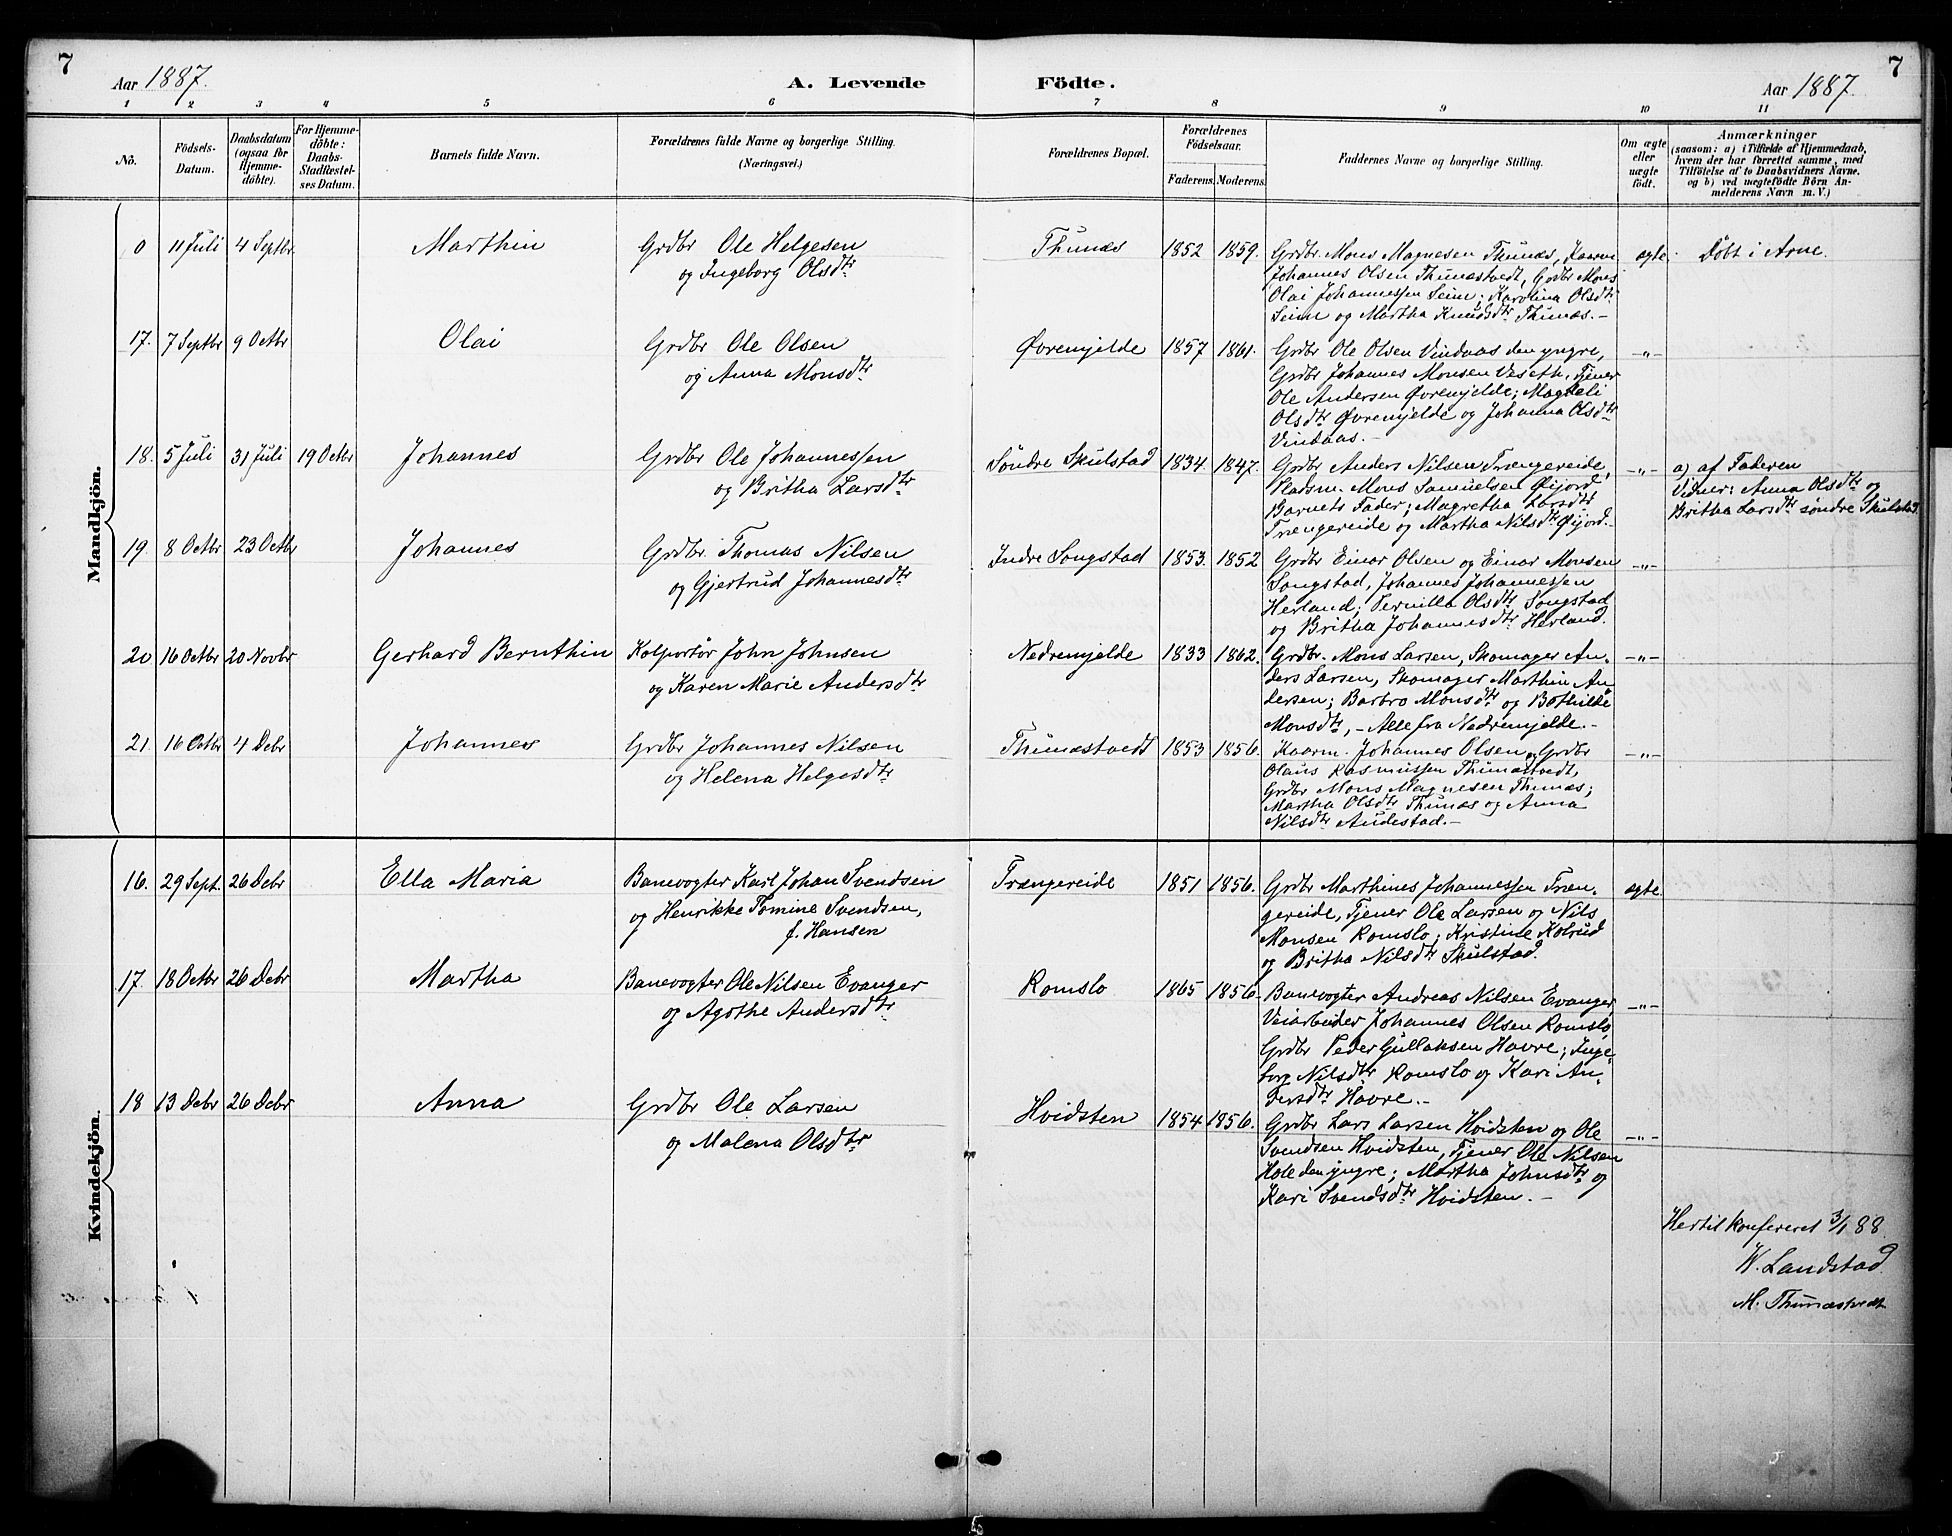 7
Aar 1887.
A. Levende Födte.
Aar 1887.
7
1 2 3 4 5 6 7 8 9 10 11
No.
Födsels-Datum.
Daabsdatum (ogsaa for Hjemmedöbte).
For Hjemmedöbte: Daabs-Stadfæstelses Datum.
Barnets fulde Navn.
Forældrenes fulde Navne og borgerlige Stilling.
(Næringsvei.)
Forældrenes Bopæl.
Forældrenes Födselsaar.
Faderens. Moderens.
Faddernes Navne og borgerlige Stilling.
Om ægte eller uægte födt.
Anmærkninger
(saasom: a) i Tilfælde af Hjemmedaab,
hvem der har forrettet samme, med
Tilföielse af to Daabsvidners Navne.
og b) ved uægtefödte Börn An-
melderens Navn m. V.)
Mandkjön.
0 11 Juli 4 Septbr Marthin Grdbr Ole Helgesen Thunæs 1852 1859. Grdbr. Mons Magnesen Thunæs, Kaarm. ægte. Döbt i Arne.
og Ingeborg Olsdtr Johannes Olsen Thunæstvedt, Grdbr Mons
Olai Johannessen Seim; Karolina Olsdtr
Seim og Martha Knudsdtr Thunæs.-
17. 7 Septbr 9 Octbr Olai Grdbr Ole Olsen Øvremjelde 1857 1861. Grdbr Ole Olsen Vindaas den yngre, -"-
og Anna Monsdtr Grdbr Johannes Monsen Veseth, Tjener
Ole Andersen Øvremjelde; Magteli
Olsdtr Øvremjelde og Johanna Olsdtr
Vindaas.-
18. 5 Juli 31 Juli 19 Octbr Johannes Grdbr Ole Johannessen Söndre Skulstad 1834 1847. Grdbr Anders Nilsen Trængereide, -"- a) af Faderen
og Britha Larsdtr Pladsm. Mons Samuelsen Øijord Vidner: Anna Olsdtr og
Barnets Fader; Magretha Larsdtr Britha Larsdtr söndre Skulstad
Trængereide og Martha Nilsdtr Øijord.-
19. 8 Octbr 23 Octbr Johannes Grdbr. Thomas Nilsen Indre Songstad 1853. 1852 Grdbr Einar Olsen og Einar Monsen -"-
og Gjertrud Johannesdtr Songstad, Johannes Johannessen
Herland; Pernilla Olsdtr Songstad
og Britha Johannesdtr Herland.
20 16 Octbr 20 Novbr Gerhard Bernthin Kolportör John Johnsen Nedremjelde 1833 1862. Grdbr. Mons Larsen, Skomager An- -"-
og Karen Marie Andersdtr ders Larsen, Skomager Marthin An-
dersen; Barbro Monsdtr og Bothilde
Monsdtr, - Alle fra Nedremjelde.-
21. 16 Octbr 4 Debr Johannes Grdbr Johannes Nilsen Thunæstvedt 1853 1856. Kaarm. Johannes Olsen og Grdbr -"-
og Helena Helgesdtr Olaus Rasmussen Thunæstvedt,
Grdbr Mons Magnesen Thunæs;
Martha Olsdtr Thunæs og Anna
Nilsdtr Audestad.-
Kvindekjön.
16. 29 Sept. 26 Debr Ella Maria Banevogter Karl Johan Svendsen Trængereide 1851 1856. Grdbr Marthines Johannessen Træn- ægte
og Henrikke Tomine Svendsen, gereide, Tjener Ole Larsen og Nils
f. Hansen Monsen Romslo; Kristine Kolrud
og Britha Nilsdtr Skulstad.
17. 18 Octbr 26 Debr Martha Banevogter Ole Nilsen Evanger Romslo 1865 1856. Banevogter Andreas Nilsen Evanger, -"-
og Agothe Andersdtr Veiarbeider Johannes Olsen Romslo
Grdbr Peder Gullaksen Havre; Inge-
borg Nilsdtr Romslo og Kari An-
dersdtr Havre.-
18 13 Debr 26 Debr Anna Grdbr Ole Larsen Hvidsten 1854 1856. Grdbr Lars Larsen Hvidsten og Ole -"-
og Malena Olsdtr Svendsen Hvidsten, Tjener Ole Nilsen
Hole den yngre; Martha Johnsdtr og
Kari Svendsdtr Hvidsten.-
Hertil konfereret 3/1 88
W. Landstad
M. Thunæstvedt